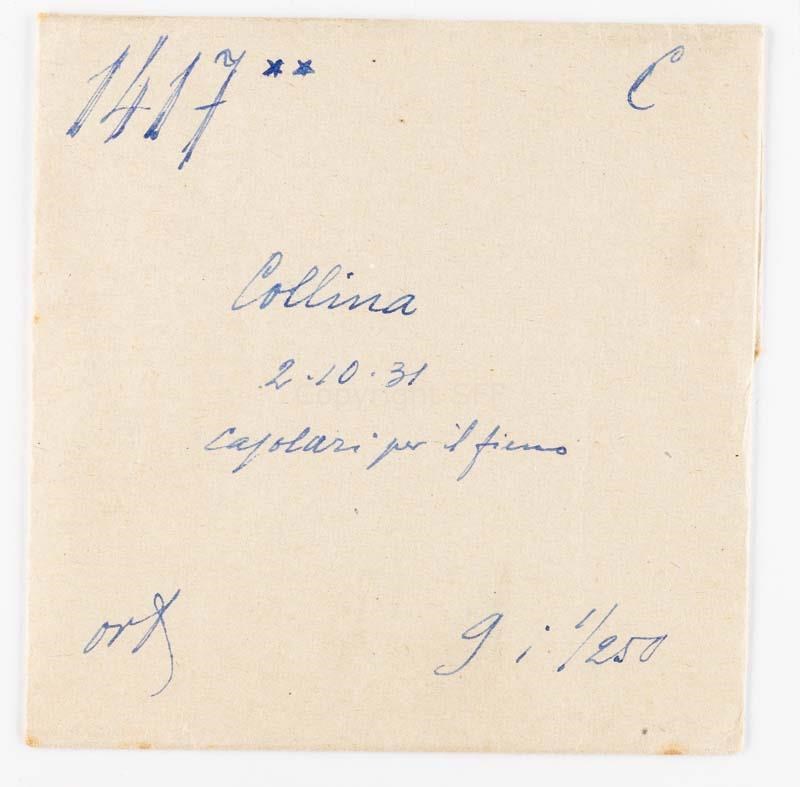 1417 ** C
Collina
2.10.31
casolari per il fieno
ort
9 i 1/250